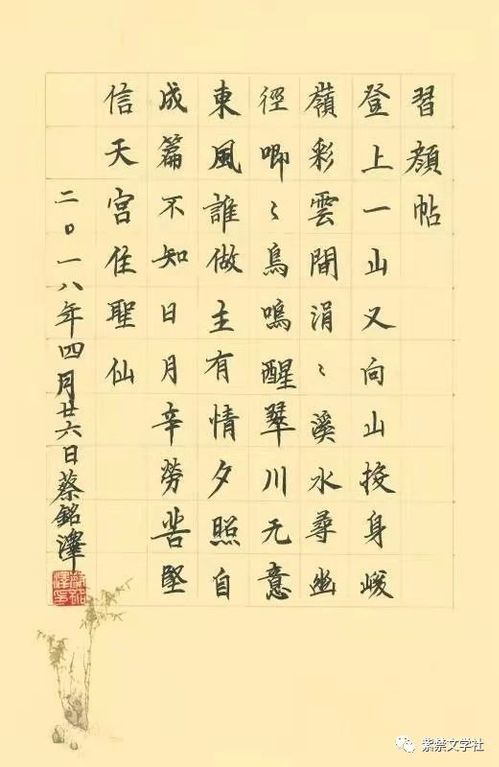 習顏帖
登上一山又向山投身峻
嶺彩雲間涓〻溪水尋幽
徑唧〻鳥鳴醒翠川无意
東風誰做主有情夕照自
成篇不知日月辛勞苦堅
信天宫住聖仙
二〇一八年四月廿六日蔡銘澤
紫禁文学社